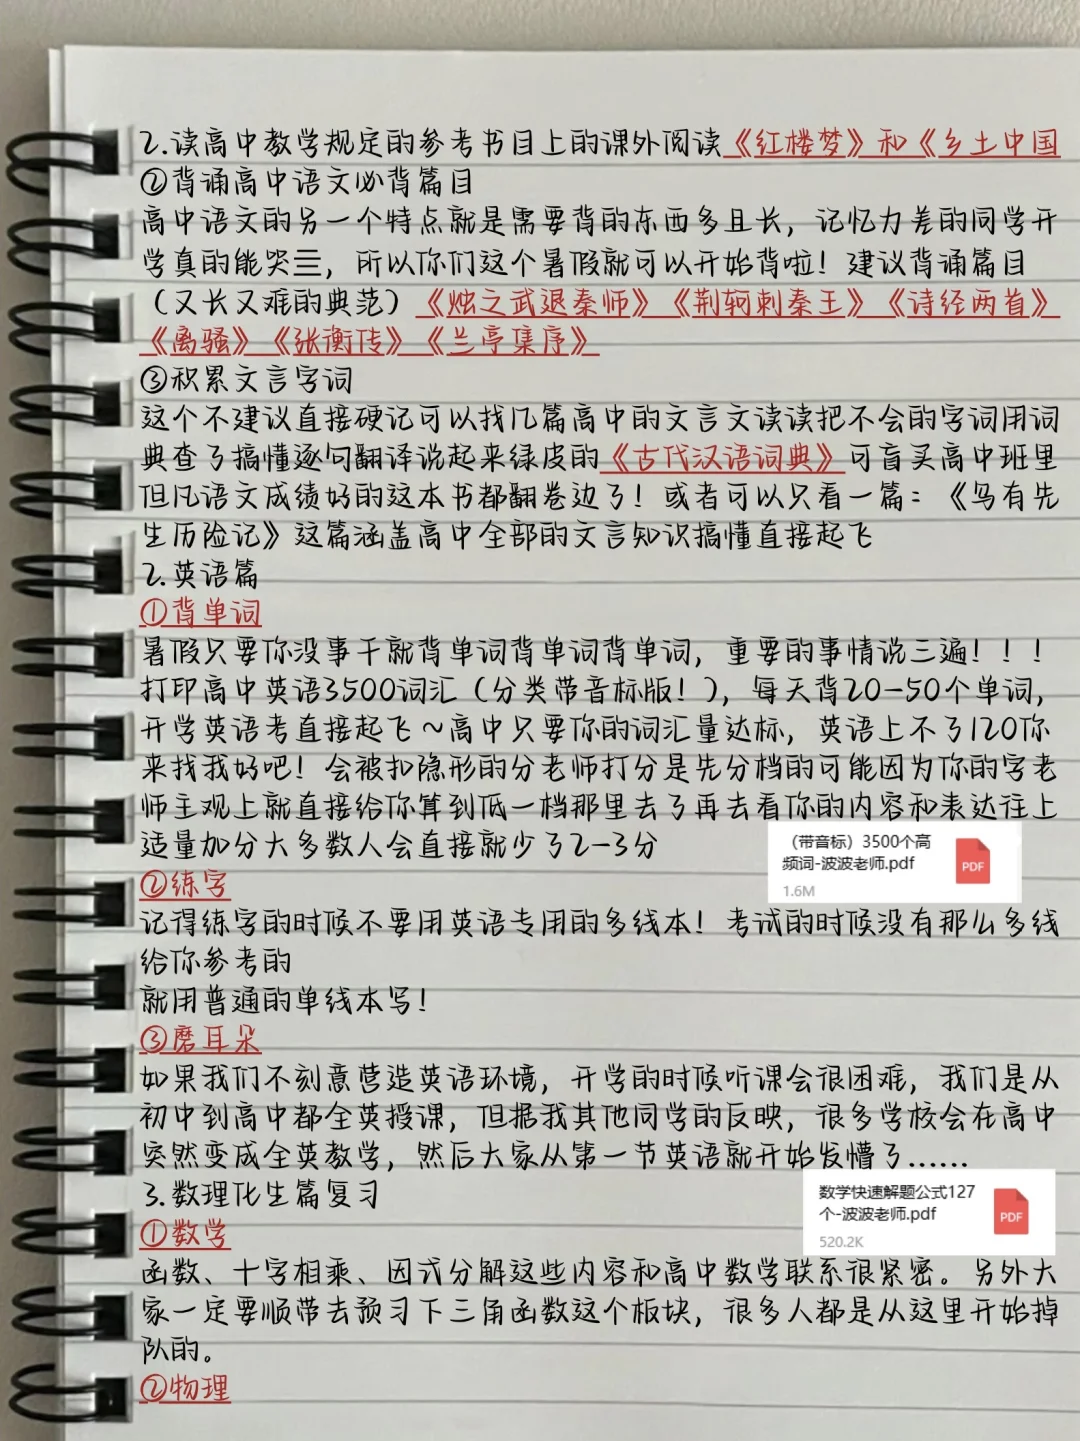 2.读高中教学规定的参考书目上的课外阅读《红楼梦》和《乡土中国
②背诵高中语文必背篇目
高中语文的另一个特点就是需要背的东西多且长，记忆力差的同学开
学真的能哭三，所以你们这个暑假就可以开始背啦！建议背诵篇目
（又长又难的典范）《烛之武退秦师》《荆轲刺秦王》《诗经两首》
《离骚》《张衡传》《兰亭集序》
③积累文言字词
这个不建议直接硬记可以找几篇高中的文言文读读把不会的字词用词
典查了搞懂逐句翻译说起来绿皮的《古代汉语词典》可盲买高中班里
但凡语文成绩好的这本书都翻卷边了！或者可以只看一篇：《乌有先
生历险记》这篇涵盖高中全部的文言知识搞懂直接起飞
2.英语篇
①背单词
暑假只要你没事干就背单词背单词背单词，重要的事情说三遍！！！
打印高中英语3500词汇（分类带音标版！），每天背20-50个单词，
开学英语考直接起飞~高中只要你的词汇量达标，英语上不了120你
来找我好吧！会被扣隐形的分老师打分是先分档的可能因为你的字老
师主观上就直接给你算到低一档那里去了再去看你的内容和表达往上
适量加分大多数人会直接就少了2-3分
（带音标）3500个高
频词-波波老师.pdf
PDF
1.6M
②练字
记得练字的时候不要用英语专用的多线本！考试的时候没有那么多线
给你参考的
就用普通的单线本写！
③磨耳朵
如果我们不刻意营造英语环境，开学的时候听课会很困难，我们是从
初中到高中都全英授课，但据我其他同学的反映，很多学校会在高中
突然变成全英教学，然后大家从第一节英语就开始发懵了......
3.数理化生篇复习
数学快速解题公式127
个-波波老师.pdf
PDF
520.2K
①数学
函数、十字相乘、因式分解这些内容和高中数学联系很紧密。另外大
家一定要顺带去预习下三角函数这个板块，很多人都是从这里开始掉
队的。
②物理